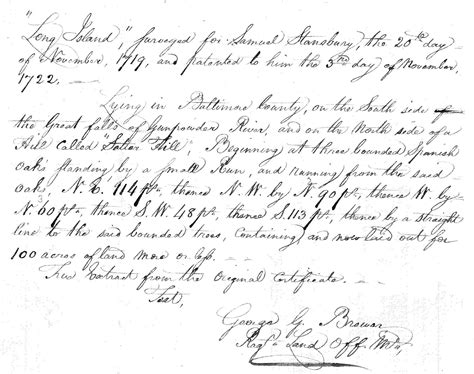 "Long Island", surveyed for Samuel Stansbury, the 20th day
of November, 1719, and patented to him the 3rd day of November,
1722. —
Lying in Baltimore County, on the South side of
the Great falls of Gunpowder River, and on the North side of a
Hill called Hill, Beginning at three bounded Spanish
Oaks standing by a small Run, and running from the said
Oaks, N. E. 114 ps, thence N. W. by N. 90 ps, thence W. by
N. 60 ps, thence S. W. 48 ps, thence S. 113 ps, thence by a straight
line to the said bounded trees, Containing and now laid out for
100 acres of land more or less. —
True Extract from the Original Certificate. —
Test,
George G. Brewer
Regr Land Off. Md,